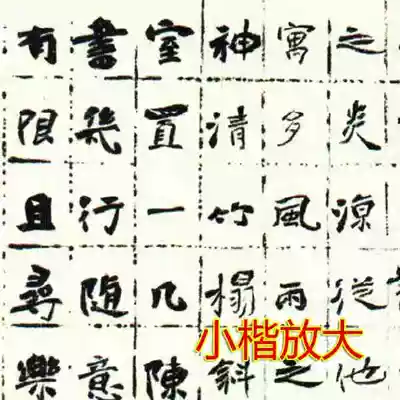 之炎涼從他
寓歹風雨之
神清竹榻斜
室置一几陳
書幾行隨意
有限且尋樂
小楷放大